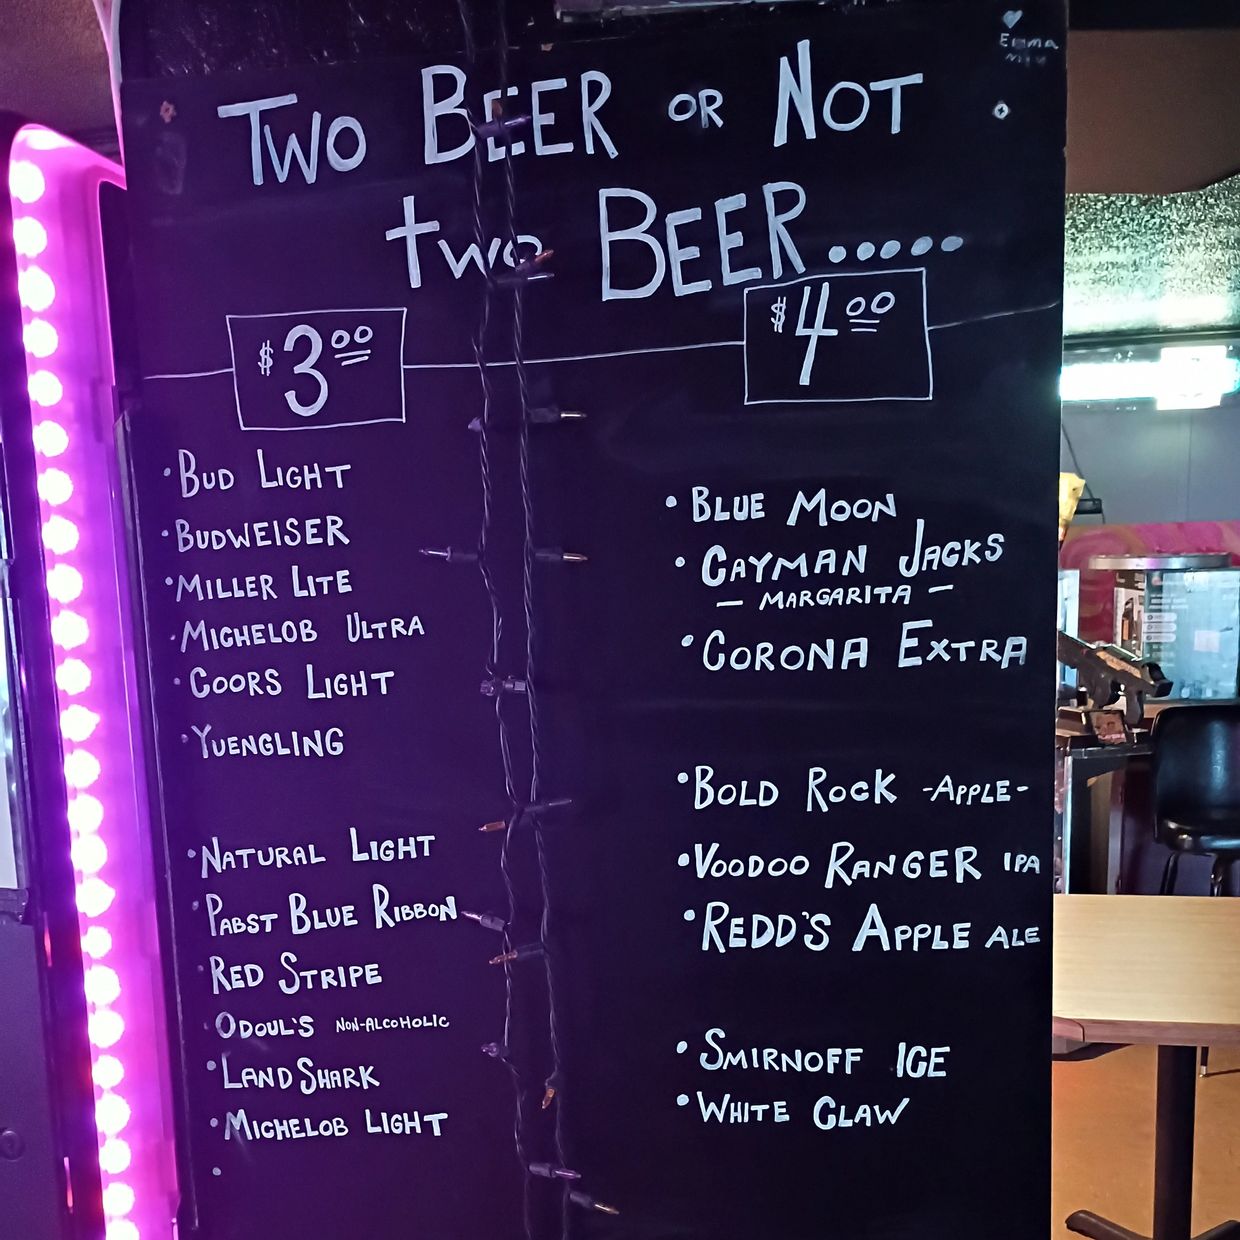 Emma
TWO BEER OR NOT
two BEER.....
$3.00
$4.00
•BUD LIGHT
•BUDWEISER
•MILLER LITE
•MICHELOB ULTRA
•COORS LIGHT
•YUENGLING
•NATURAL LIGHT
•PABST BLUE RIBBON
•RED STRIPE
•ODOUL'S NON-ALCOHOLIC
•LANDSHARK
•MICHELOB LIGHT
•
•BLUE MOON
•CAYMAN JACKS
— MARGARITA —
•CORONA EXTRA
•BOLD ROCK -APPLE-
•VOODOO RANGER IPA
•REDD'S APPLE ALE
•SMIRNOFF ICE
•WHITE CLAW